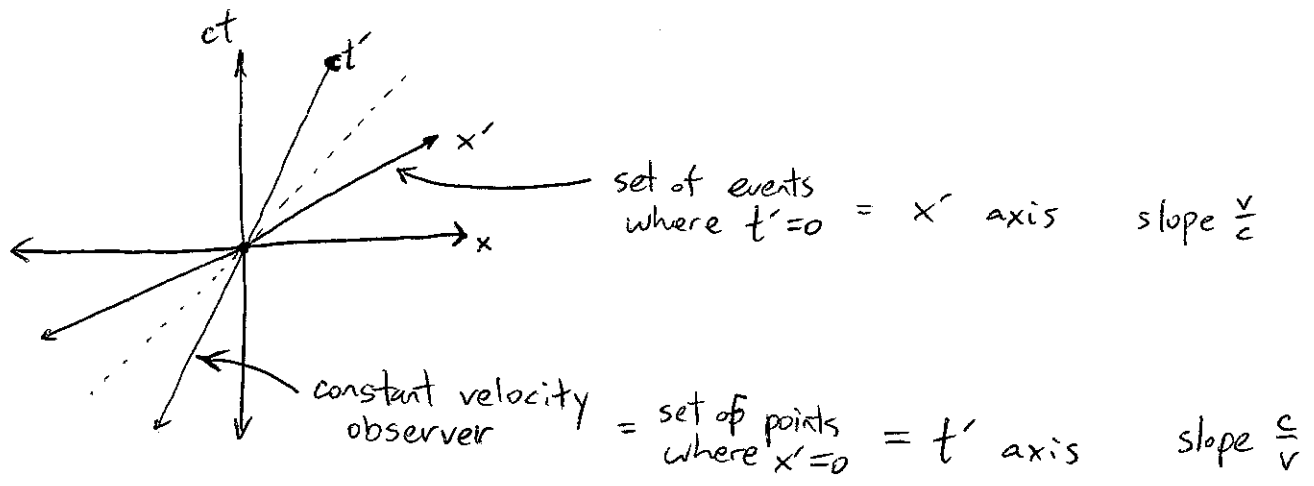 ct
ct′
x′
x
set of events
where t′=0 = x′ axis slope v/c
constant velocity
observer = set of points
where x′=0 = t′ axis slope c/v